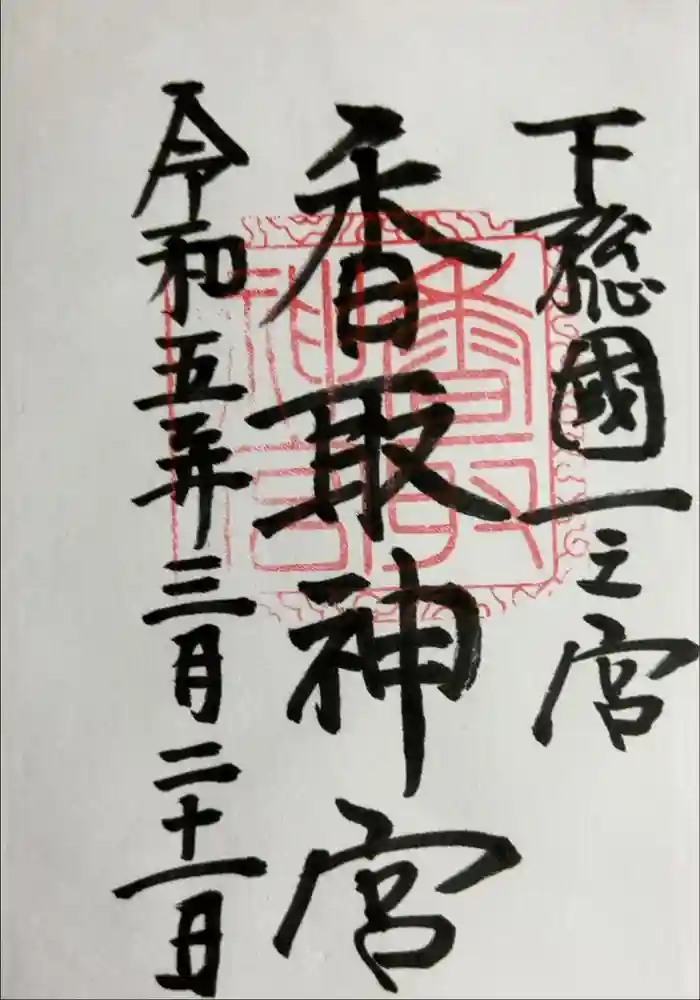 下総國一之宮
香取神宮
令和五年三月二十一日
香取神宮